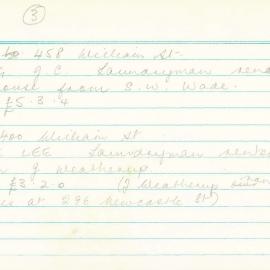 3
458 William St.
J.C. Laundryman rends
house from S.W. Wade.
£5.3.4
400 William St
LEE Laundryman rents
of Weatherup.
£3.2.0 (J Weatherup
at 296 Newcastle St)